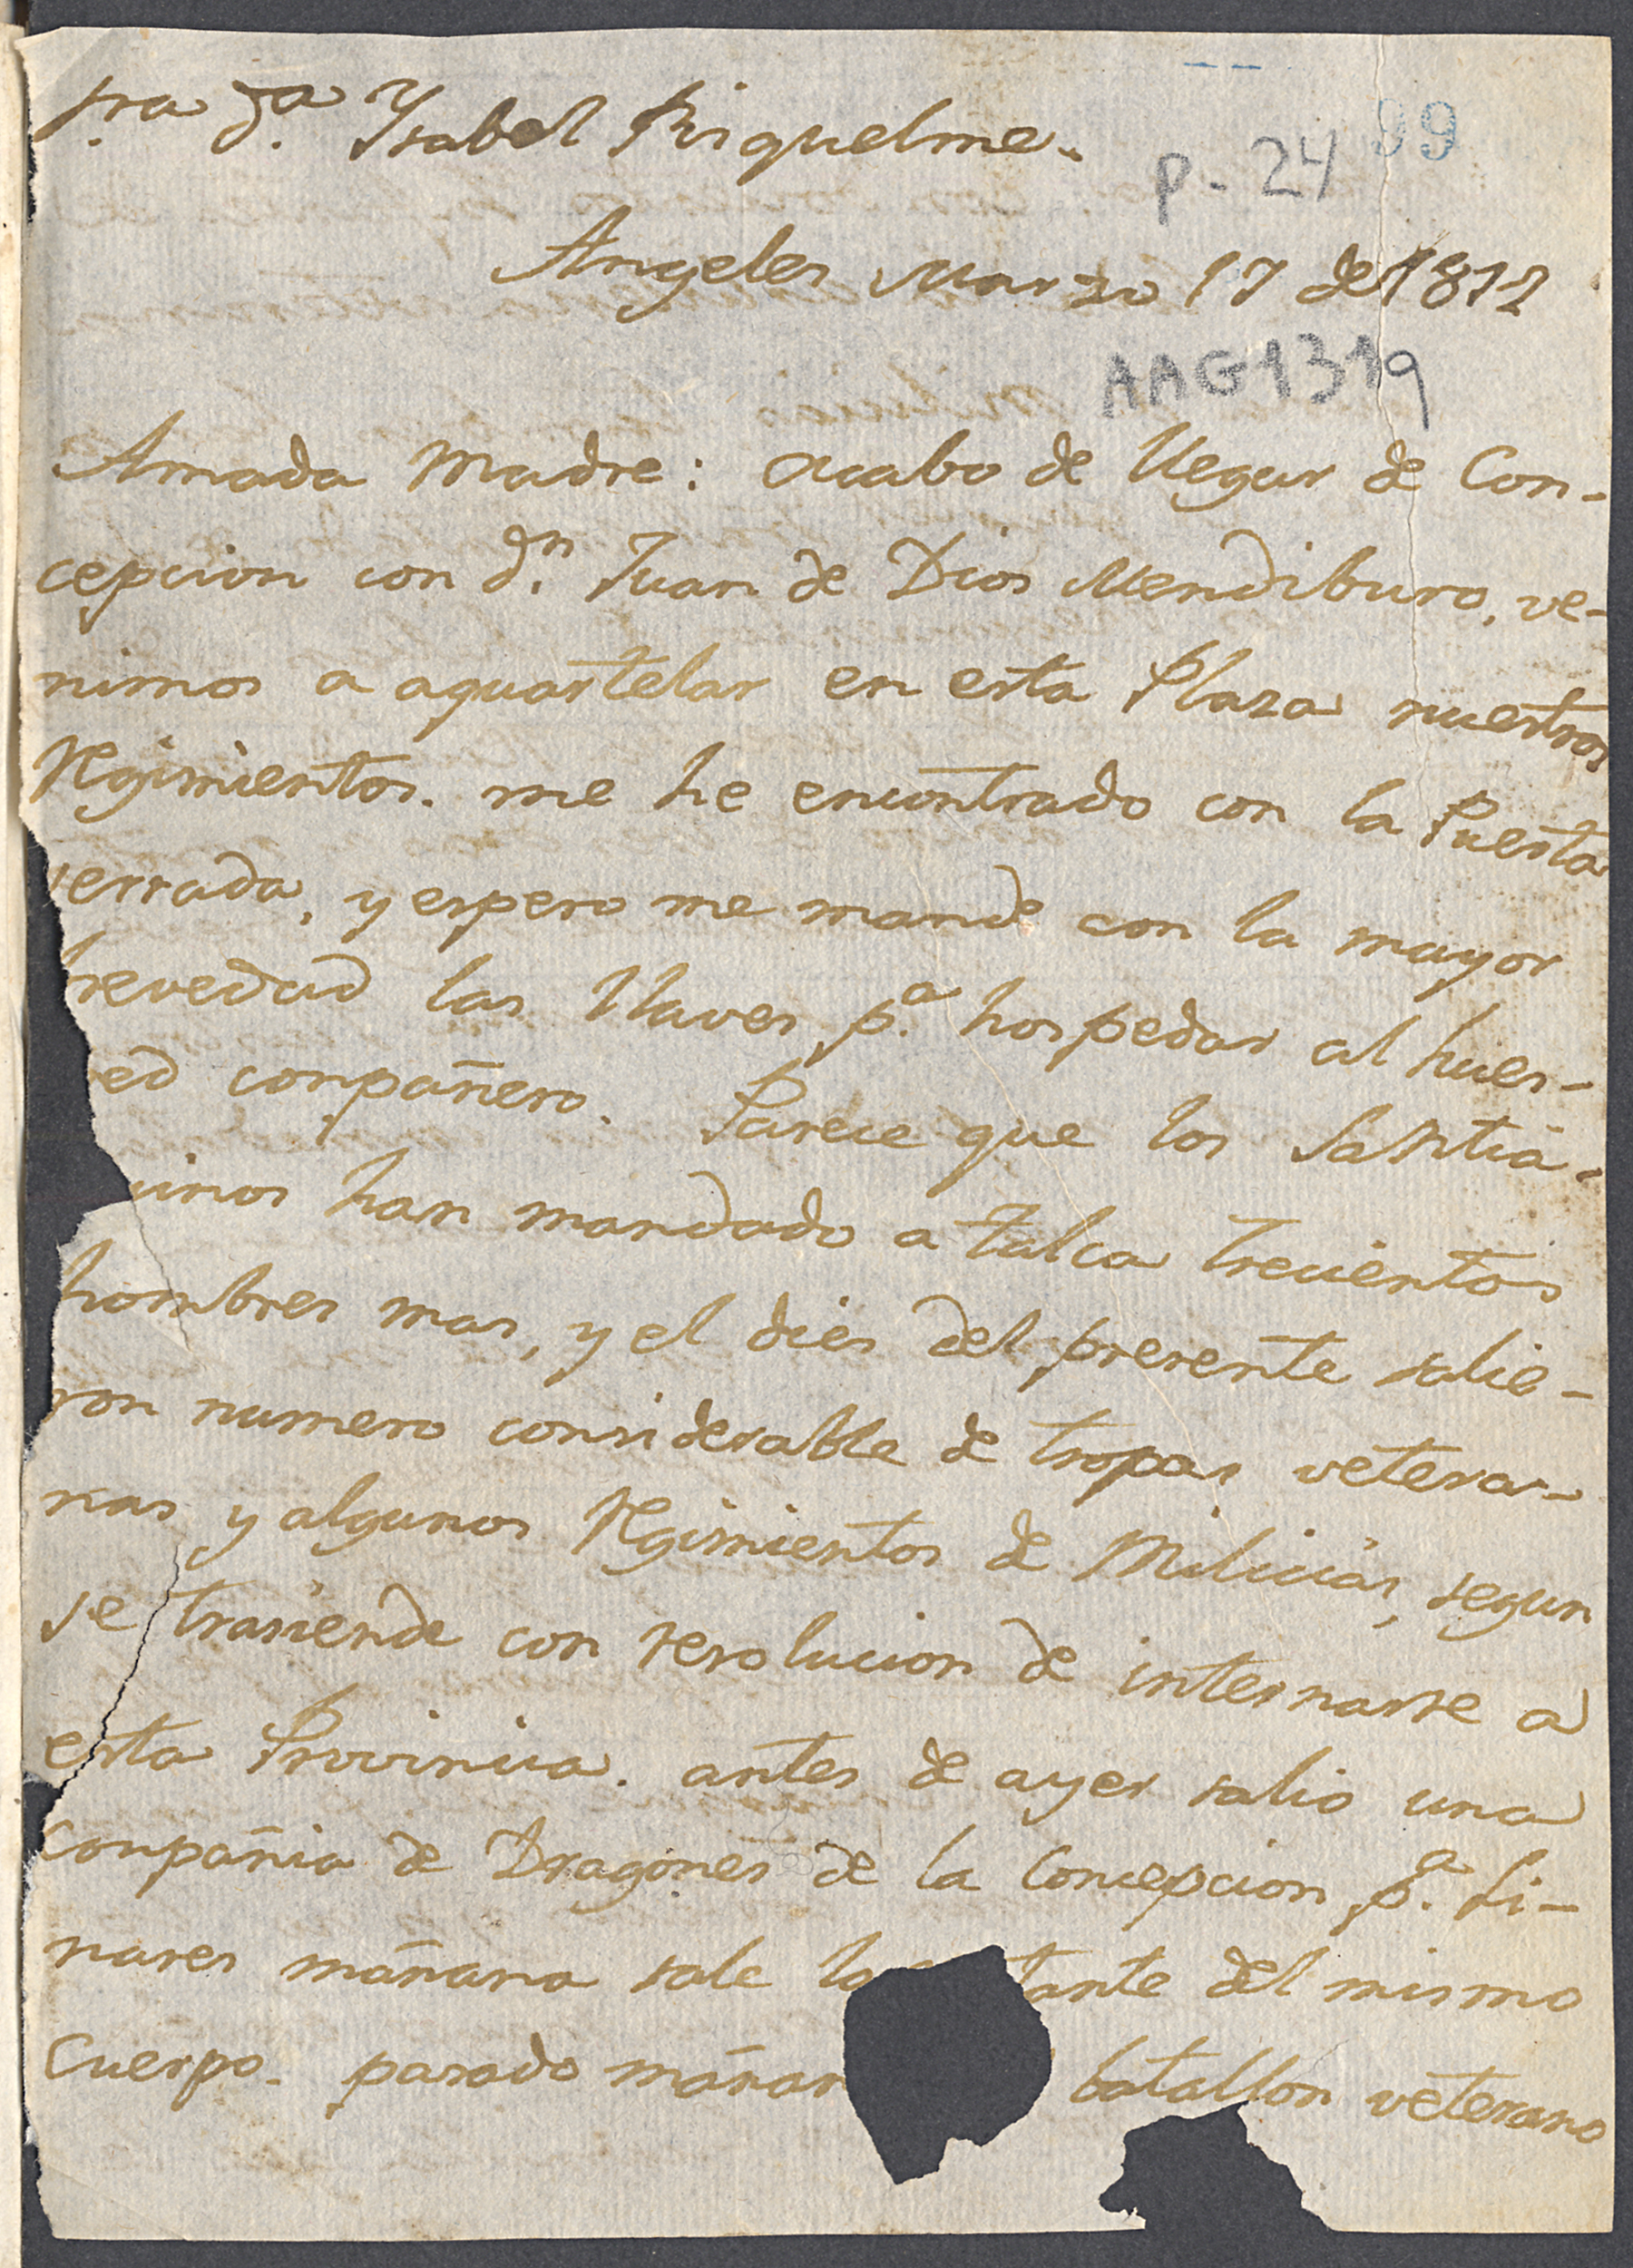 Sra. Da. Ysabel Riquelme.
99
p-24
Angeles Marzo 17 de 1812
AAG1319
Amada Madre: Acabo de llegar de Con-
cepcion con Dn. Juan de Dios Mendiburo, ve-
nimos a aquartelar en esta Plaza nuestros
Regimientos. me he encontrado con la Puerta
serrada, y espero me mande con la mayor
brevedad las llaves pa. hospedar al hues-
ed conpañero. Parece que los Santia-
uinos han mandado a Talca trecientos
hombres mas, y el dies del presente salie-
ron numero considerable de tropas vetera-
nas y algunos Regimientos de Milicias, segun
se trasiende con resolucion de internarse a
esta Provincia. antes de ayer salio una
Conpañia de Dragones de la Concepcion pa. Li-
nares mañana sale lo tante del mismo
Cuerpo. pasado mañan batallon veterano